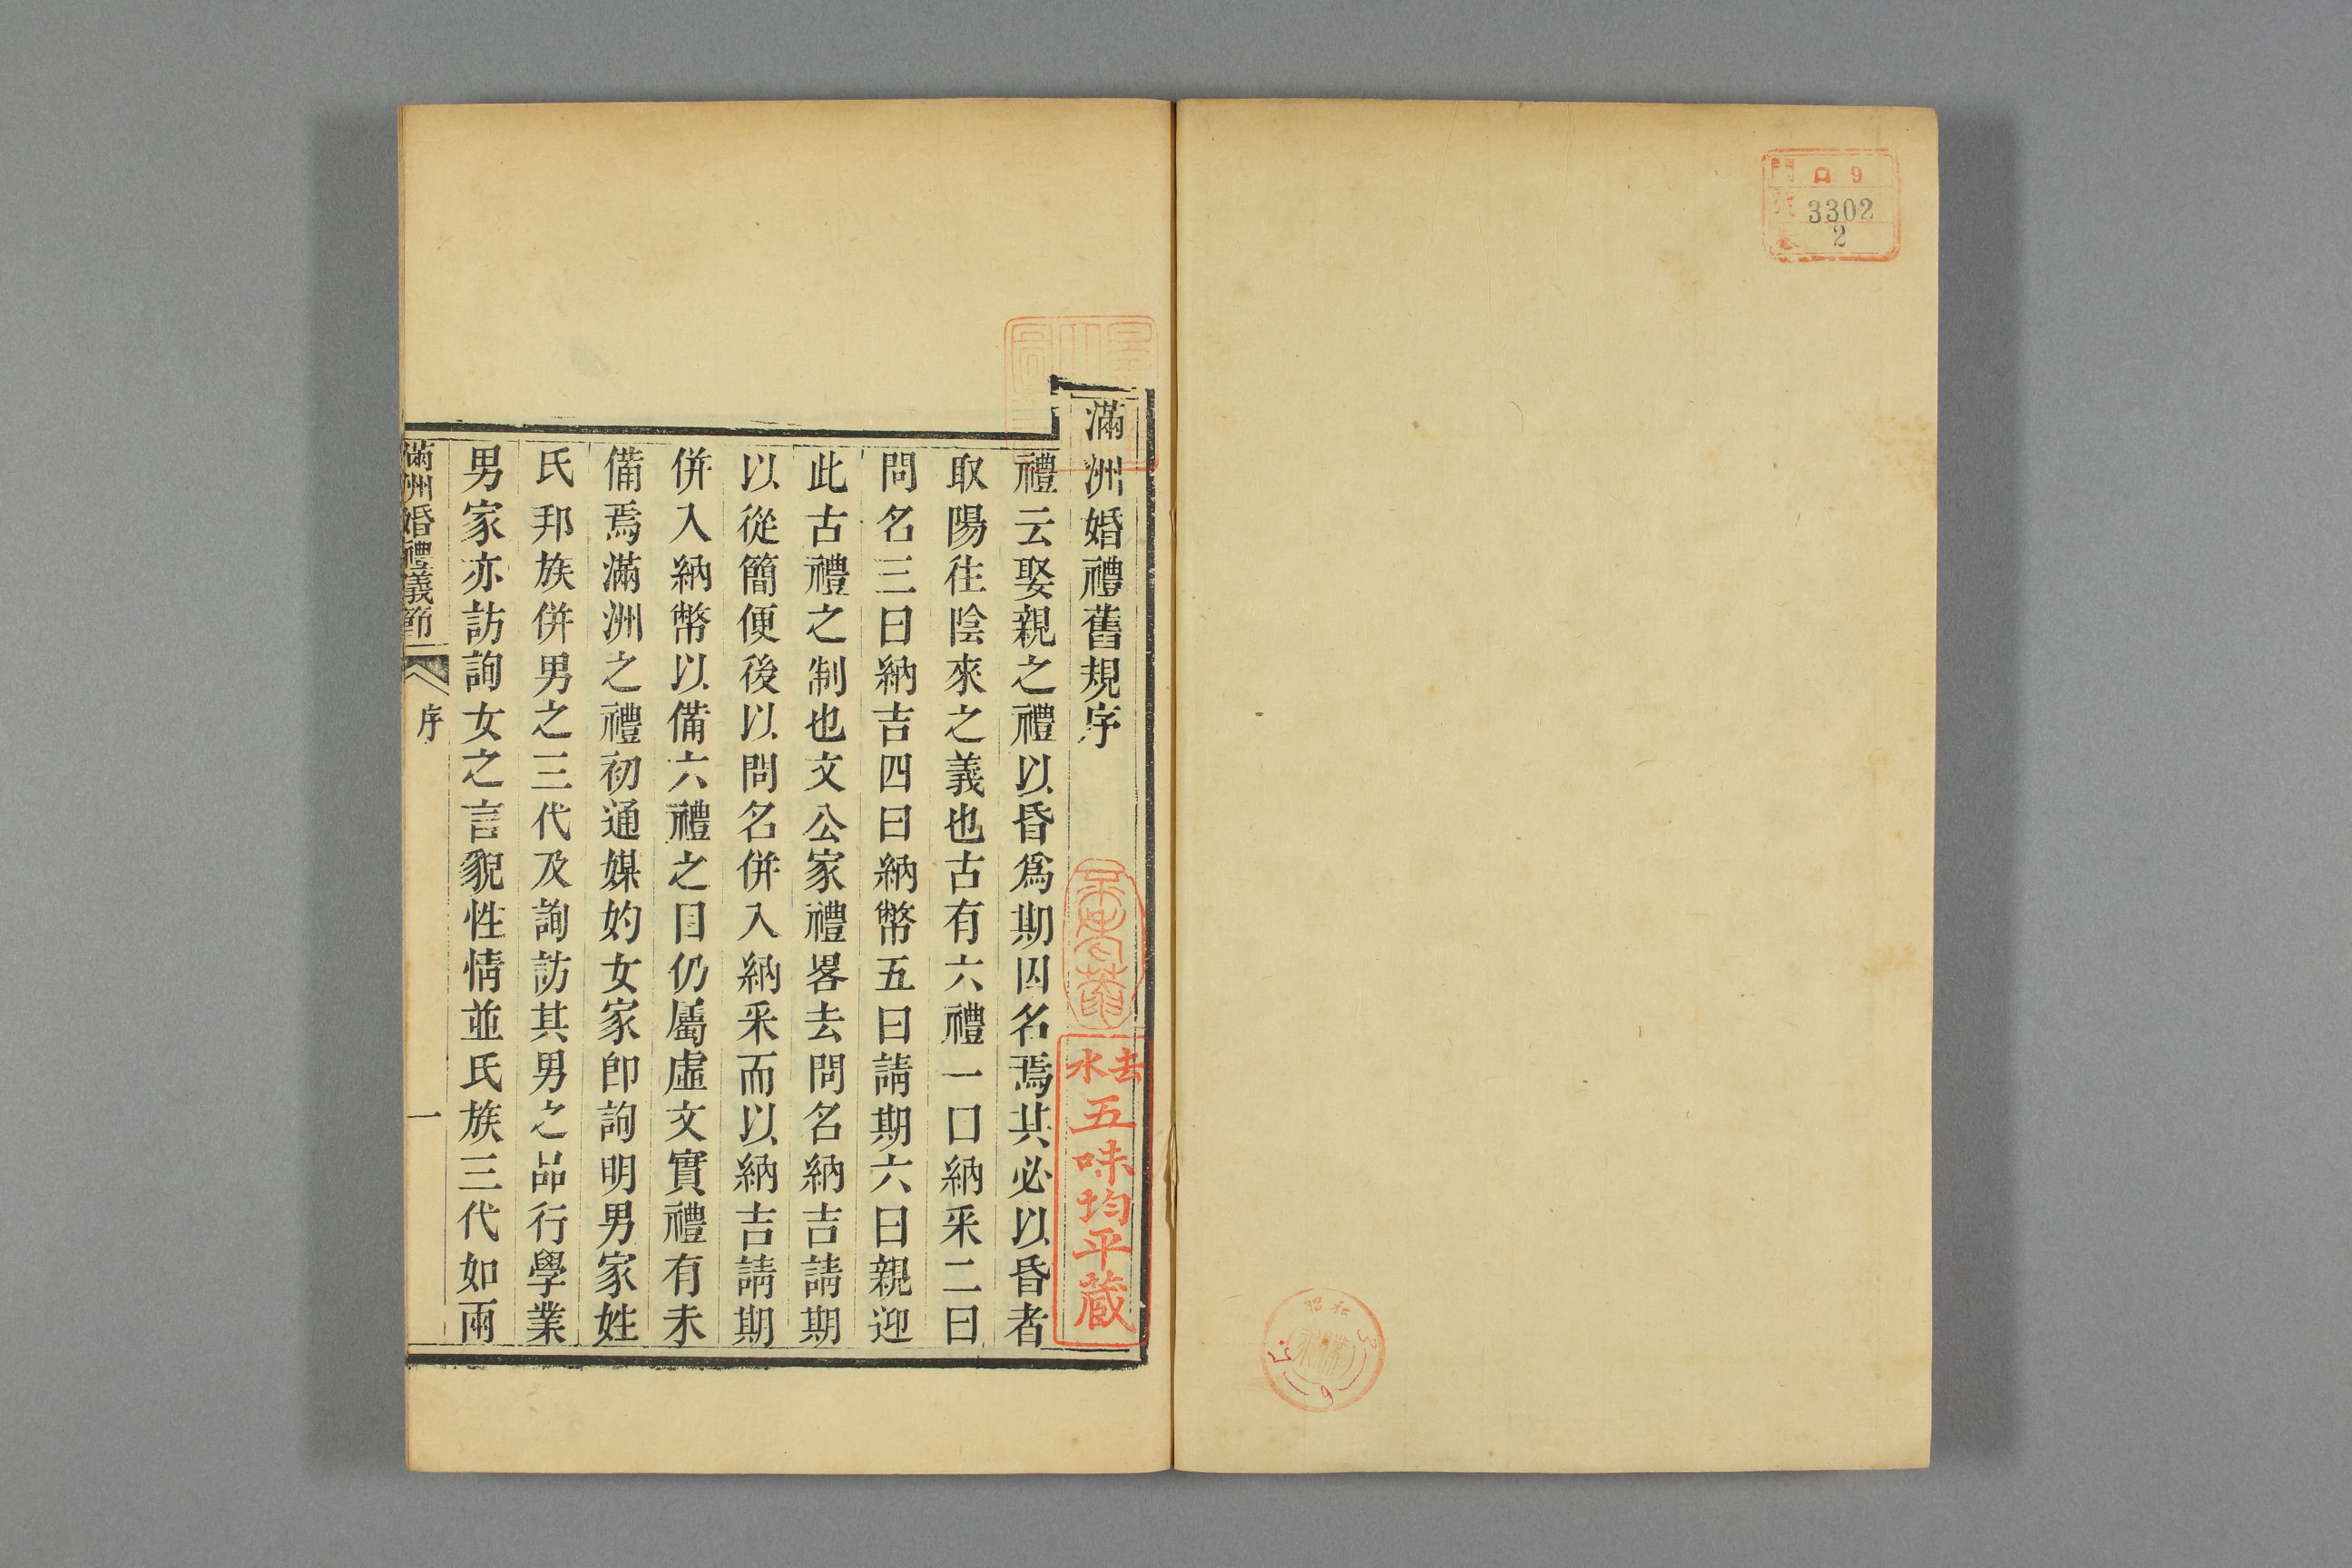 門 ロ 9
號 3302
卷 2
滿洲婚禮舊規序
禮云娶親之禮以昏爲期因名焉其必以昏者
取陽往陰來之義也古有六禮一曰納采二曰
問名三曰納吉四曰納幣五曰請期六曰親迎
此古禮之制也文公家禮畧去問名納吉請期
以從簡便後以問名併入納采而以納吉請期
併入納幣以備六禮之目仍屬虛文實禮有未
備焉滿洲之禮初通媒妁女家卽詢明男家姓
氏邦族併男之三代及詢訪其男之品行學業
男家亦訪詢女之言貌性情並氏族三代如兩
滿洲婚禮儀節 序 一
去水
五味均平蔵
昭和